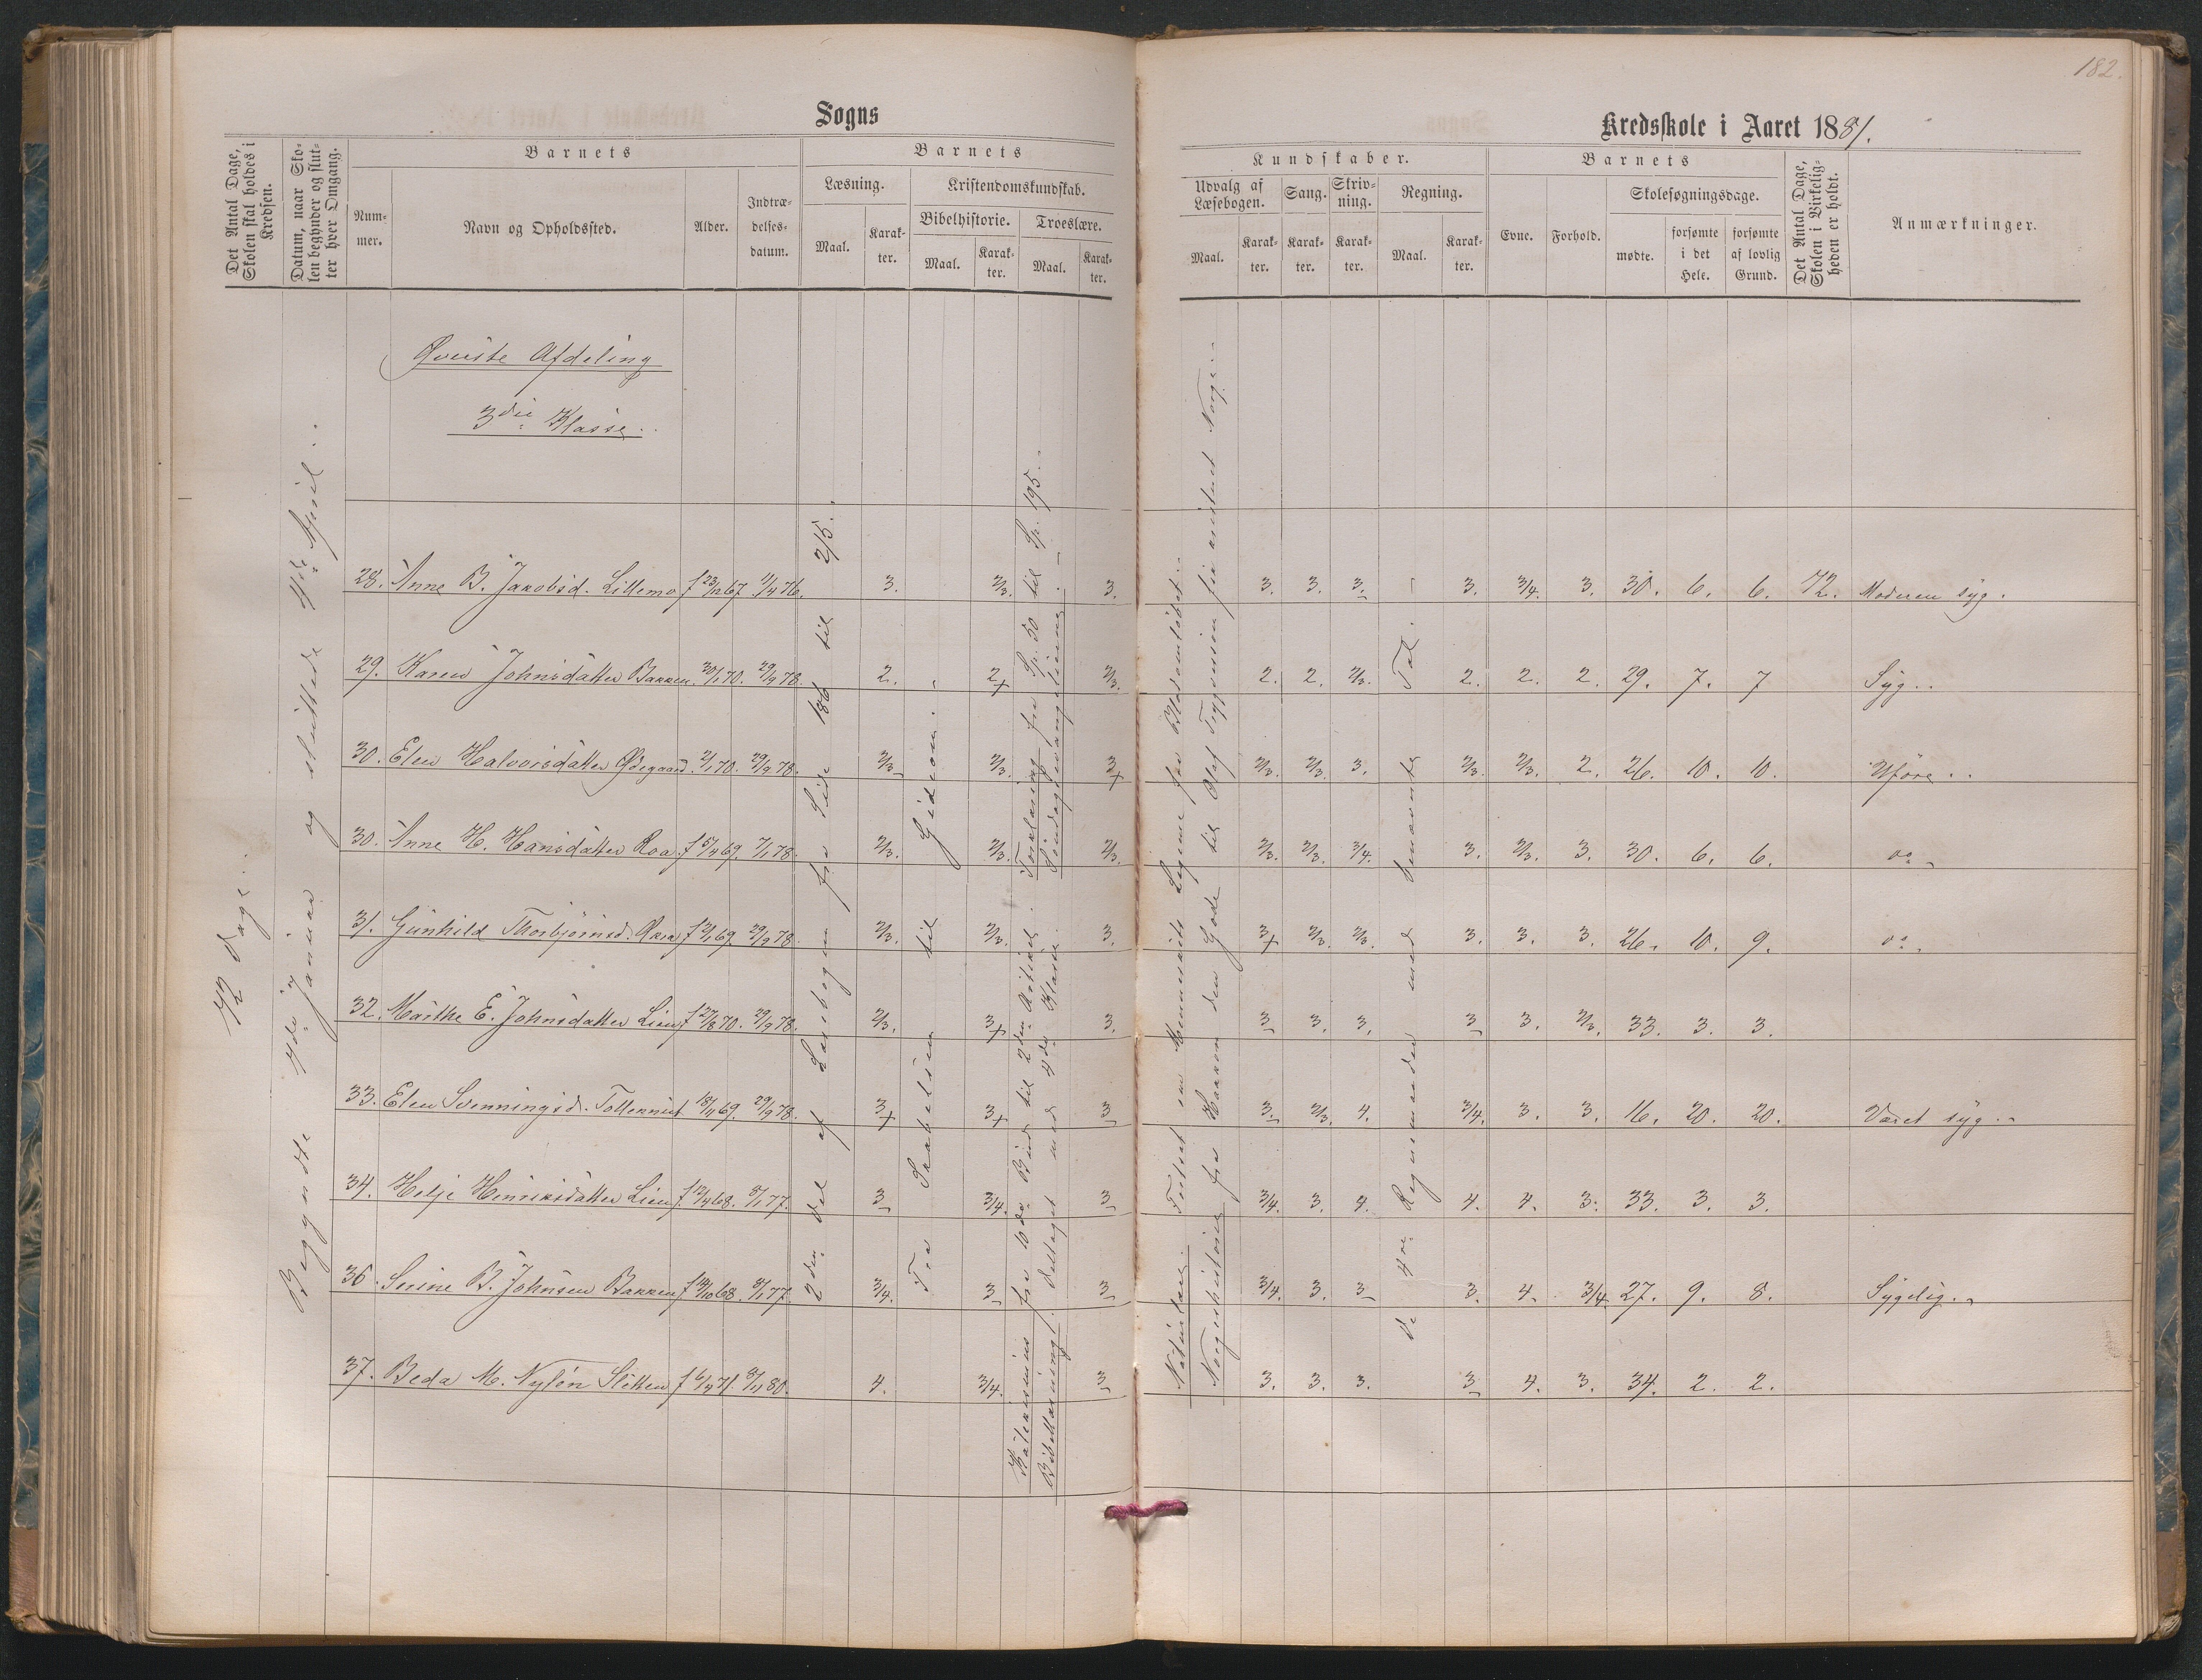 182.
Sogns
Kredsskole i Aaret 1881.
Det Antal Dage, Skolen skal holdes i Kredsen.
Datum, naar Skolen begynder og slutter hver Omgang.
Barnets
Nummer.
Navn og Opholdssted.
Alder.
Indtrædelsesdatum.
Barnets
Læsning.
Maal.
Karakter.
Kristendomskundskab.
Bibelhistorie.
Maal.
Karakter.
Troeslære.
Maal.
Karakter.
Kundskaber.
Udvalg af Læsebogen.
Maal.
Karakter.
Sang.
Karakter.
Skrivning.
Karakter.
Regning.
Maal.
Karakter.
Barnets
Evne.
Forhold.
Skolesøgningsdage.
mødte.
forsømte i det Hele.
forsømte af lovlig Grund.
Det Antal Dage, Skolen i Virkeligheden er holdt.
Anmærkninger.
Øverste Afdeling
3die Klasse.
72 Dage.
Begyndte 7de Januar og sluttede 4de April.
2den Del af Læsebogen fra Side 186 til 215.
Fra Skabelsen til Gideon.
Katekismus fra 10de Bud til 2den Artikel. Forklaring fra Sp. 50 til Sp. 195.
Bibellæsning. Deltaget med 4de Klasse. Søndagsevangelierne.
Naturlære. Fortsat om Menneskets Legeme fra Blodomløbet.
Norgeshistorie fra Haakon den Gode til Olaf Tryggvason
De 4re Regnemaader med benævnte Tal.
28. Anne B. Jakobsd. Lillemo f 23/12 67. 1/4 76. 3. 2/3. 3. 3. 3. 3. 3. 3/4. 3. 30. 6. 6. 72. Moderen syg.
29. Karen Johnsdatter Bakken 20/1 70. 29/9 78. 2. 2+ 2/3. 2. 2. 2/3. 2. 2. 2. 29. 7. 7 Syg.
30. Elen Halvorsdatter Ødegaard 2/1 70. 29/9 78. 2/3. 2/3. 3+ 2/3. 2/3. 3. 2/3. 2/3. 2. 26. 10. 10. Uføre.
30. Anne H. Hansdatter Roa f 5/4 69. 7/1 78. 2/3. 2/3. 2/3. 2/3. 2/3. 3/4. 3. 2/3. 3. 30. 6. 6. do
31. Gunhild Thorbjørnsd. 29/9 78. 2/3. 2/3. 3. 3+ 2/3. 2/3. 3. 3. 3. 26. 10. 9. do
32. Marthe E. Johnsdatter Lien f 27/8 70. 29/9 78. 2/3. 3+ 3. 3 3. 3. 3 3. 2/3. 33. 3. 3.
33. Elen Svenningsd. 18/11 69. 29/9 78. 3+ 3+ 3 3. 2/3. 4. 3/4. 3. 3. 16. 20. 20. Været syg.
34. Helje Henriksdatter Lien f. 12/4 68. 8/1 77. 3 3/4. 3 3/4. 3. 4. 4. 4. 3. 33. 3. 3.
36. Serine B. Johnsen Bakken f 14/10 68. 8/1 77. 3/4. 3 3 3/4. 3. 3 3. 4. 3/4 27. 9. 8. Sygelig.
37. Beda M. Nylén Sletten f 6/4 71. 8/1 80. 4. 3/4. 3 3. 3. 3. 3 4. 3. 34. 2. 2.